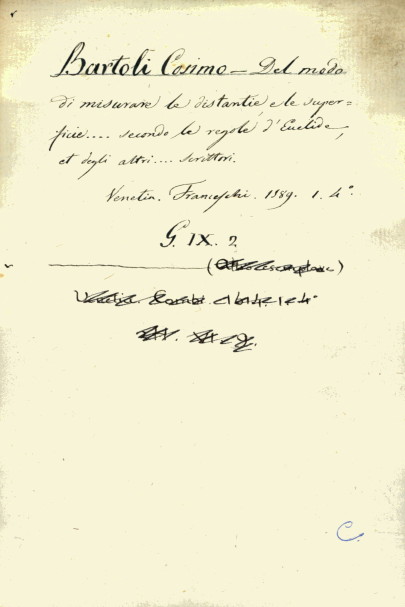 Bartoli Cosimo — Del modo
di misurare le distantie, e le super=
ficie.... secondo le regole d'Euclide,
et degli altri.... scrittori.
Venetia. Franceschi. 1589. 1. 4°.
G. IX. 2
C.